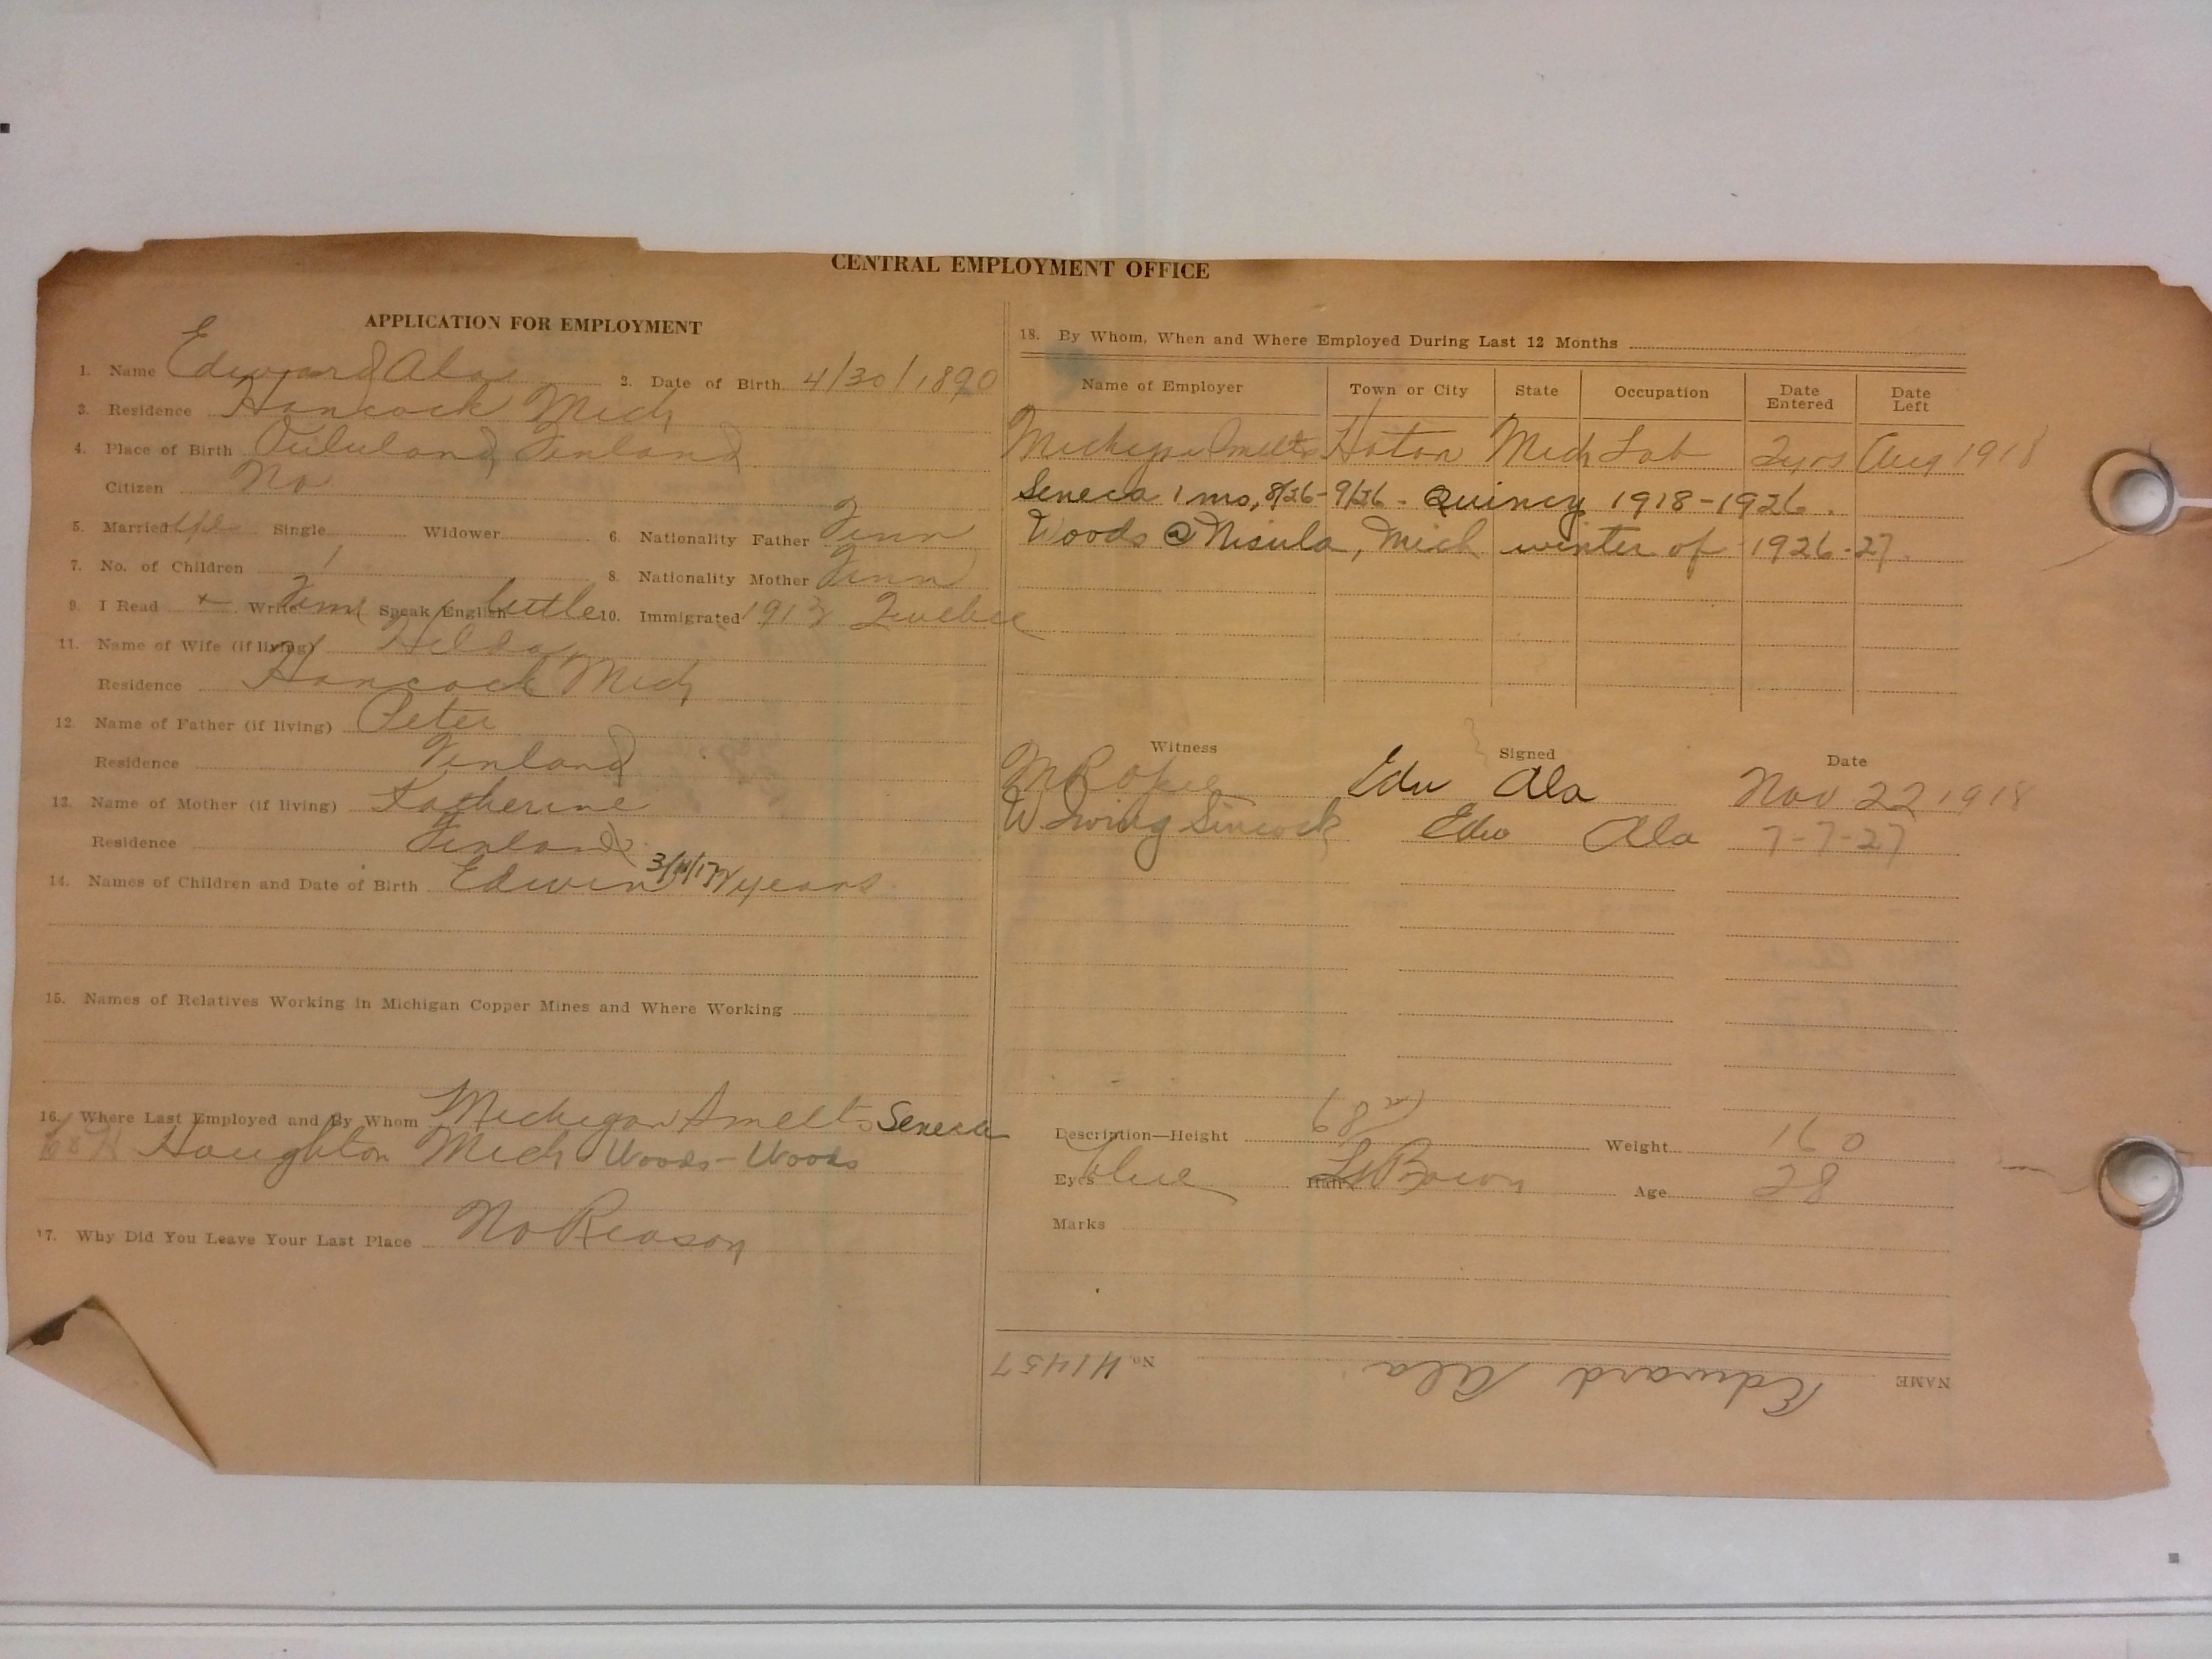 CENTRAL EMPLOYMENT OFFICE
APPLICATION FOR EMPLOYMENT
1. Name Edward Ala 2. Date of Birth 4/30/1890
3. Residence Hancock Mich
4. Place of Birth Finland
Citizen No
5. Married Single Widower 6. Nationality Father Finn
7. No. of Children 1 8. Nationality Mother Finn
9. I Read Write Finn Speak English Little 10. Immigrated 1913 Quebec
11. Name of Wife (if living) Hilda
Residence Hancock Mich
12. Name of Father (if living) Peter
Residence Finland
13. Name of Mother (if living) Katherine
Residence Finland
14. Names of Children and Date of Birth Edwin years
15. Names of Relatives Working in Michigan Copper Mines and Where Working
16. Where Last Employed and By Whom Michigan Smelt Seneca
Houghton Mich Woods - Woods
17. Why Did You Leave Your Last Place No Reason
18. By Whom, When and Where Employed During Last 12 Months
Name of Employer Town or City State Occupation Date Entered Date Left
Michigan Smelts Hoton Mich Lab 2yrs Aug 1918
Seneca 1 mo, 8/26-9/26 - Quincy 1918-1926.
Woods @ Nisula, Mich winter of 1926-27.
Witness Signed Date
Edw Ala Nov 22 1918
W Irving Sincock Edw Ala 7-7-27
Description—Height Weight 160
Eyes Blue Hair Lt Brown Age 28
Marks
NAME Edward Ala No. 41457